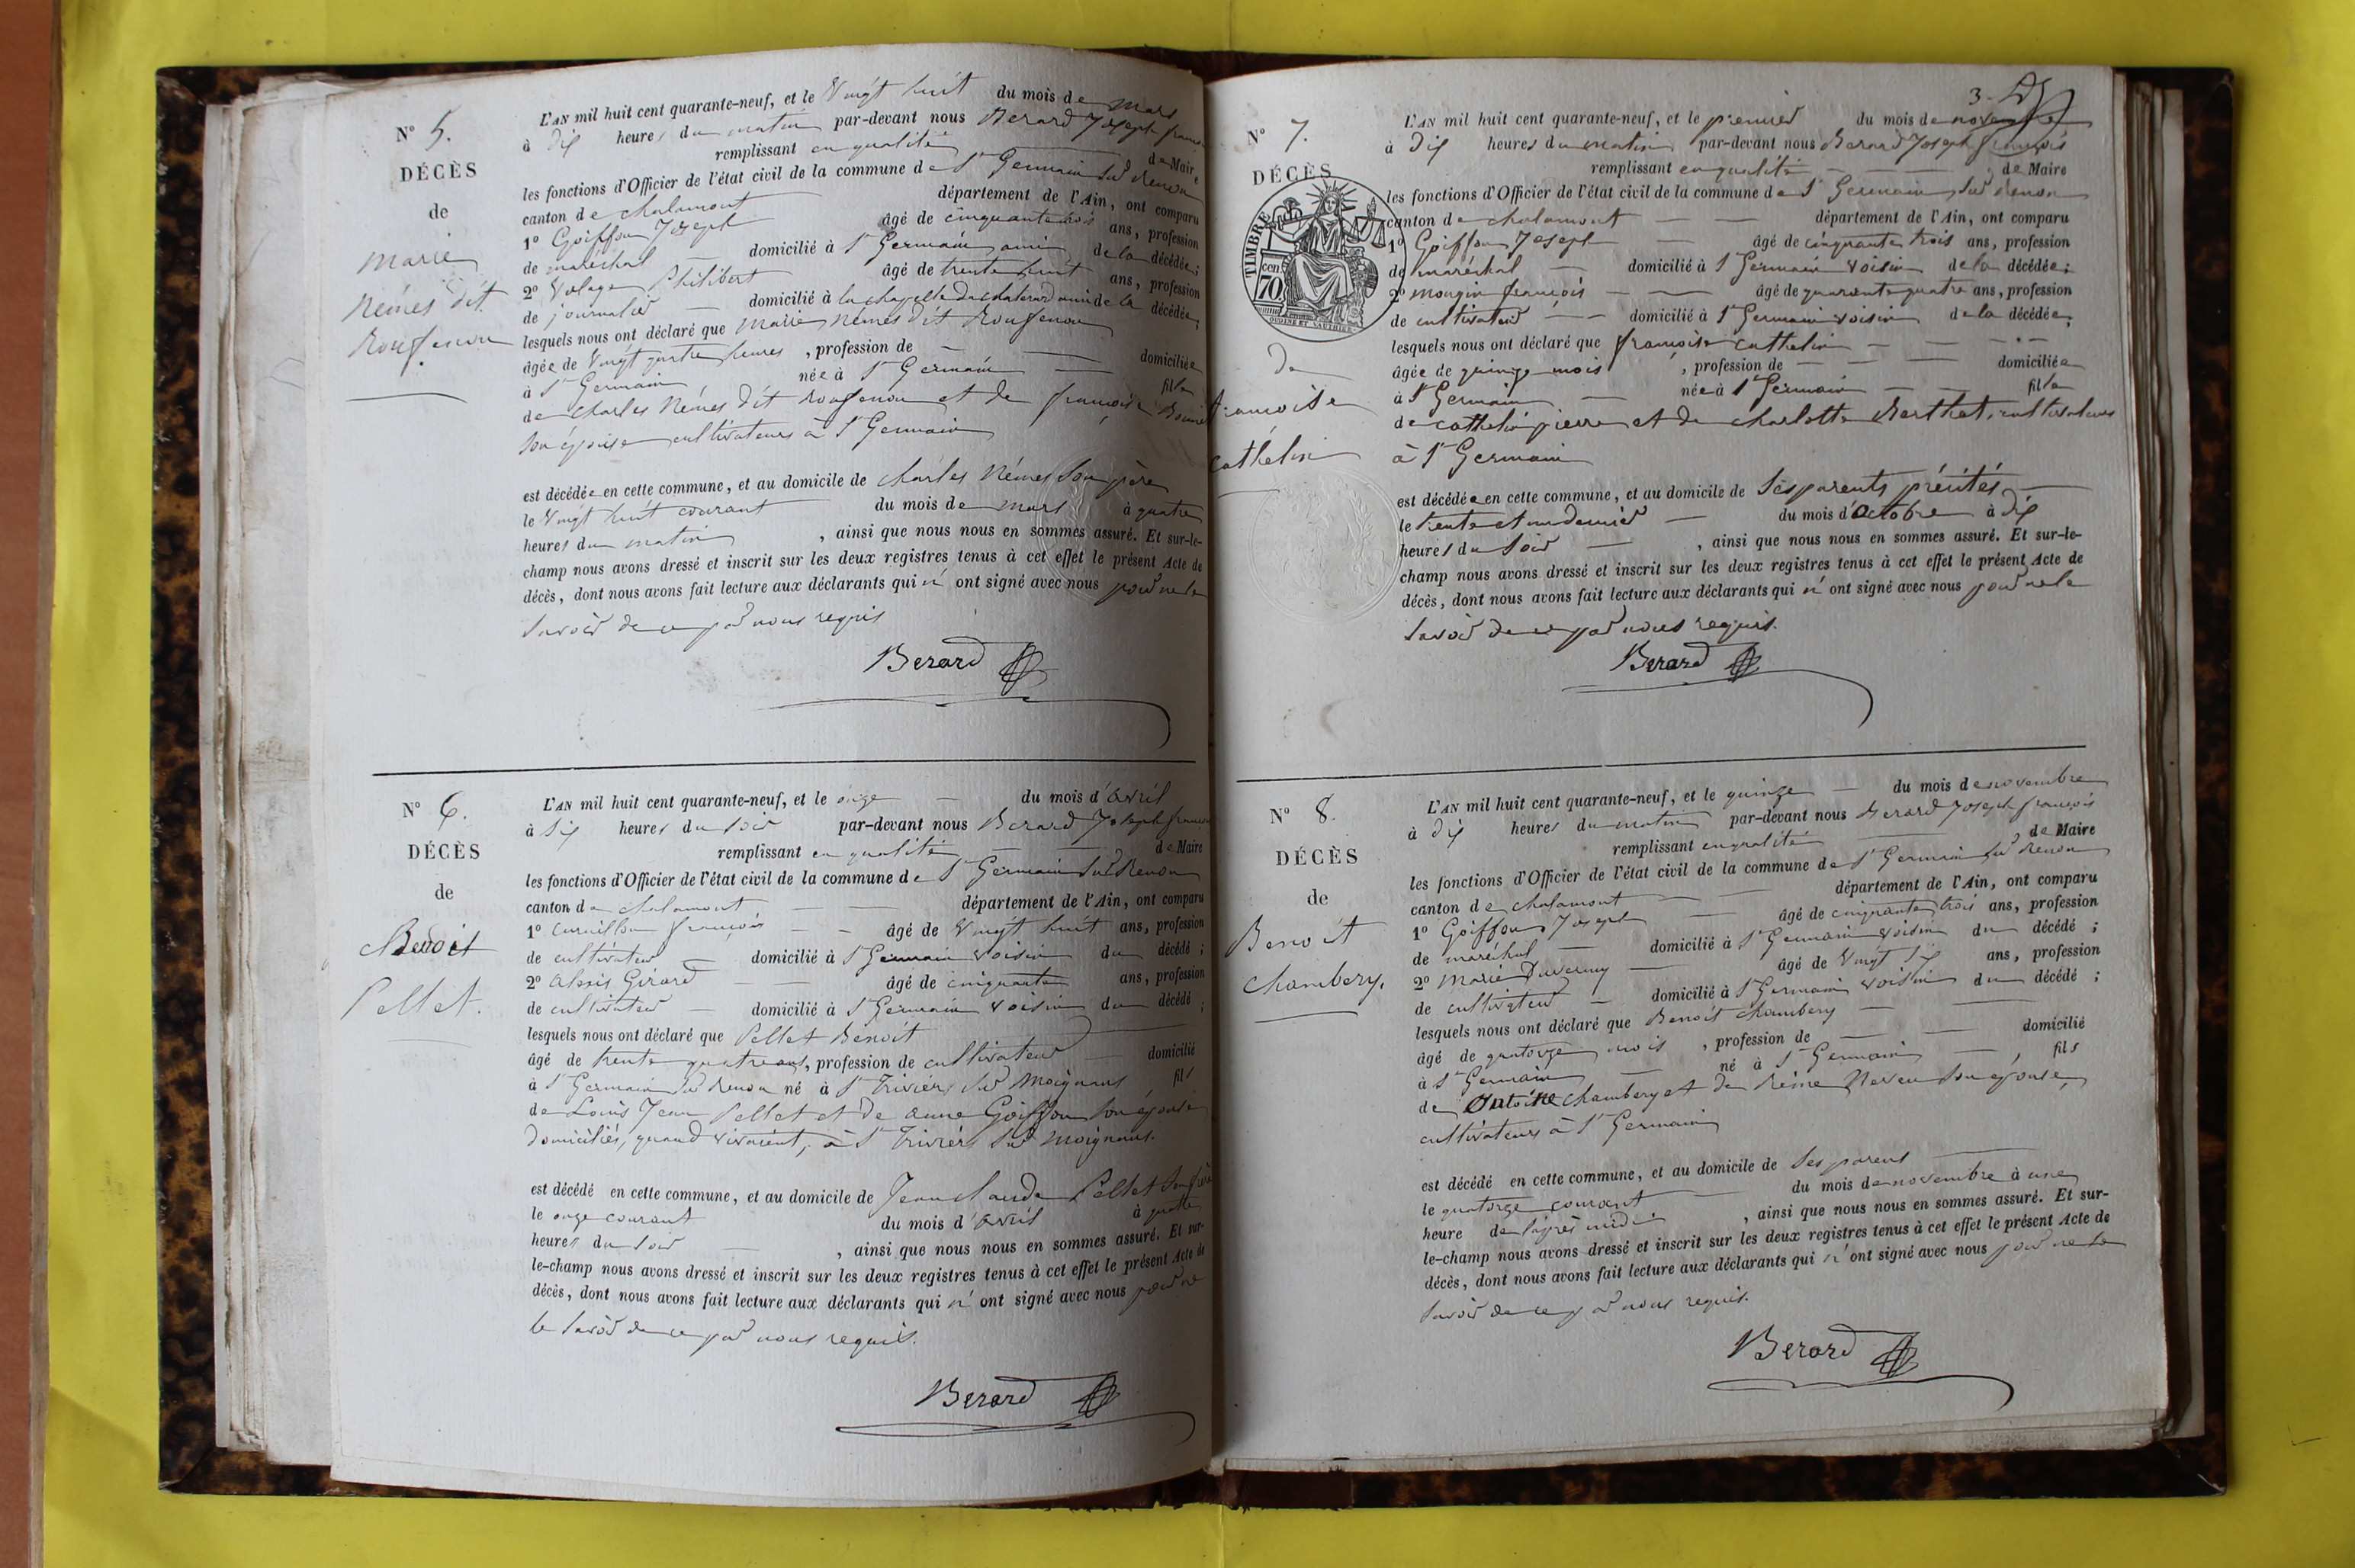 N° 5.
DÉCÈS
de
Marie
Némes dit
L'AN mil huit cent quarante-neuf, et le Vingt huit du mois de Mars
à dix heures du matin par-devant nous Berard Joseph françois
remplissant en qualité de Maire
les fonctions d'Officier de l'état civil de la commune de St Germain sur Renon
canton de chalamont département de l'Ain, ont comparu
1° Goiffon Joseph âgé de cinquante trois ans, profession
de maréchal domicilié à St Germain ami de la décédée;
2° Philibert âgé de trente huit ans, profession
de journalier domicilié à la chapelle du chatelard ami de la décédée;
lesquels nous ont déclaré que Marie Némes dit
âgée de Vingt quatre heures, profession de domiciliée
à St Germain née à St Germain fille
de Charles Némes dit et de françoise
son épouse cultivateurs à St Germain
est décédée en cette commune, et au domicile de Charles Némes son père
le Vingt huit courant du mois de mars à quatre
heures du matin, ainsi que nous nous en sommes assuré. Et sur-le-
champ nous avons dressé et inscrit sur les deux registres tenus à cet effet le présent Acte de
décès, dont nous avons fait lecture aux déclarants qui n'ont signé avec nous pour ne le
savoir de ce par nous requis
Berard
N° 6.
DÉCÈS
de
Benoit
Pellet.
L'AN mil huit cent quarante-neuf, et le onze du mois d'avril
à six heures du soir par-devant nous Berard Joseph françois
remplissant en qualité de Maire
les fonctions d'Officier de l'état civil de la commune de St Germain sur Renon
canton de chalamont département de l'Ain, ont comparu
1° françois âgé de Vingt huit ans, profession
de cultivateur domicilié à St Germain voisin du décédé;
2° Alexis Girard âgé de cinquante ans, profession
de cultivateur domicilié à St Germain voisin du décédé;
lesquels nous ont déclaré que Pellet Benoit
âgé de trente quatre ans, profession de cultivateur domicilié
à St Germain sur Renon né à St Triviér sur Moignans, fils
de Louis Jean Pellet et de anne Goiffon son épouse
domiciliés, quand vivaient, à St Triviér sur Moignans.
est décédé en cette commune, et au domicile de Jean claude Pellet son frère
le onze courant du mois d'avril à quatre
heures du soir, ainsi que nous nous en sommes assuré. Et sur-
le-champ nous avons dressé et inscrit sur les deux registres tenus à cet effet le présent Acte de
décès, dont nous avons fait lecture aux déclarants qui n'ont signé avec nous pour ne
le savoir de ce par nous requis.
Berard
3.
N° 7.
DÉCÈS
TIMBRE
cen
70
de
françoise
cathelin
L'AN mil huit cent quarante-neuf, et le premier du mois de novembre
à dix heures du matin par-devant nous Berard Joseph françois
remplissant en qualité de Maire
les fonctions d'Officier de l'état civil de la commune de St Germain sur Renon
canton de chalamont département de l'Ain, ont comparu
1° Goiffon Joseph âgé de cinquante trois ans, profession
de maréchal domicilié à St Germain voisin de la décédée;
2° Mongin françois âgé de quarante quatre ans, profession
de cultivateur domicilié à St Germain voisin de la décédée;
lesquels nous ont déclaré que françoise cathelin
âgée de quinze mois, profession de domiciliée
à St Germain née à St Germain fille
de cathelin pierre et de charlotte Berthet, cultivateurs
à St Germain
est décédée en cette commune, et au domicile de ses parents précités
le trente et un dernier du mois d'octobre à dix
heures du soir, ainsi que nous nous en sommes assuré. Et sur-le-
champ nous avons dressé et inscrit sur les deux registres tenus à cet effet le présent Acte de
décès, dont nous avons fait lecture aux déclarants qui n'ont signé avec nous pour ne le
savoir de ce par nous requis.
Berard
N° 8.
DÉCÈS
de
Benoît
chambery.
L'AN mil huit cent quarante-neuf, et le quinze du mois de novembre
à dix heures du matin par-devant nous Berard Joseph françois
remplissant en qualité de Maire
les fonctions d'Officier de l'état civil de la commune de St Germain sur Renon
canton de chalamont département de l'Ain, ont comparu
1° Goiffon Joseph âgé de cinquante trois ans, profession
de maréchal domicilié à St Germain voisin du décédé;
2° Marie Duverney âgé de Vingt six ans, profession
de cultivateur domicilié à St Germain voisin du décédé;
lesquels nous ont déclaré que Benoit chambery
âgé de quatorze mois, profession de domicilié
à St Germain né à St Germain, fils
de Antoine chambery et de Reine Neveu son épouse
cultivateurs à St Germain
est décédé en cette commune, et au domicile de ses parens
le quatorze courant du mois de novembre à une
heure de l'après midi, ainsi que nous nous en sommes assuré. Et sur-
le-champ nous avons dressé et inscrit sur les deux registres tenus à cet effet le présent Acte de
décès, dont nous avons fait lecture aux déclarants qui n'ont signé avec nous pour ne le
savoir de ce par nous requis.
Berard